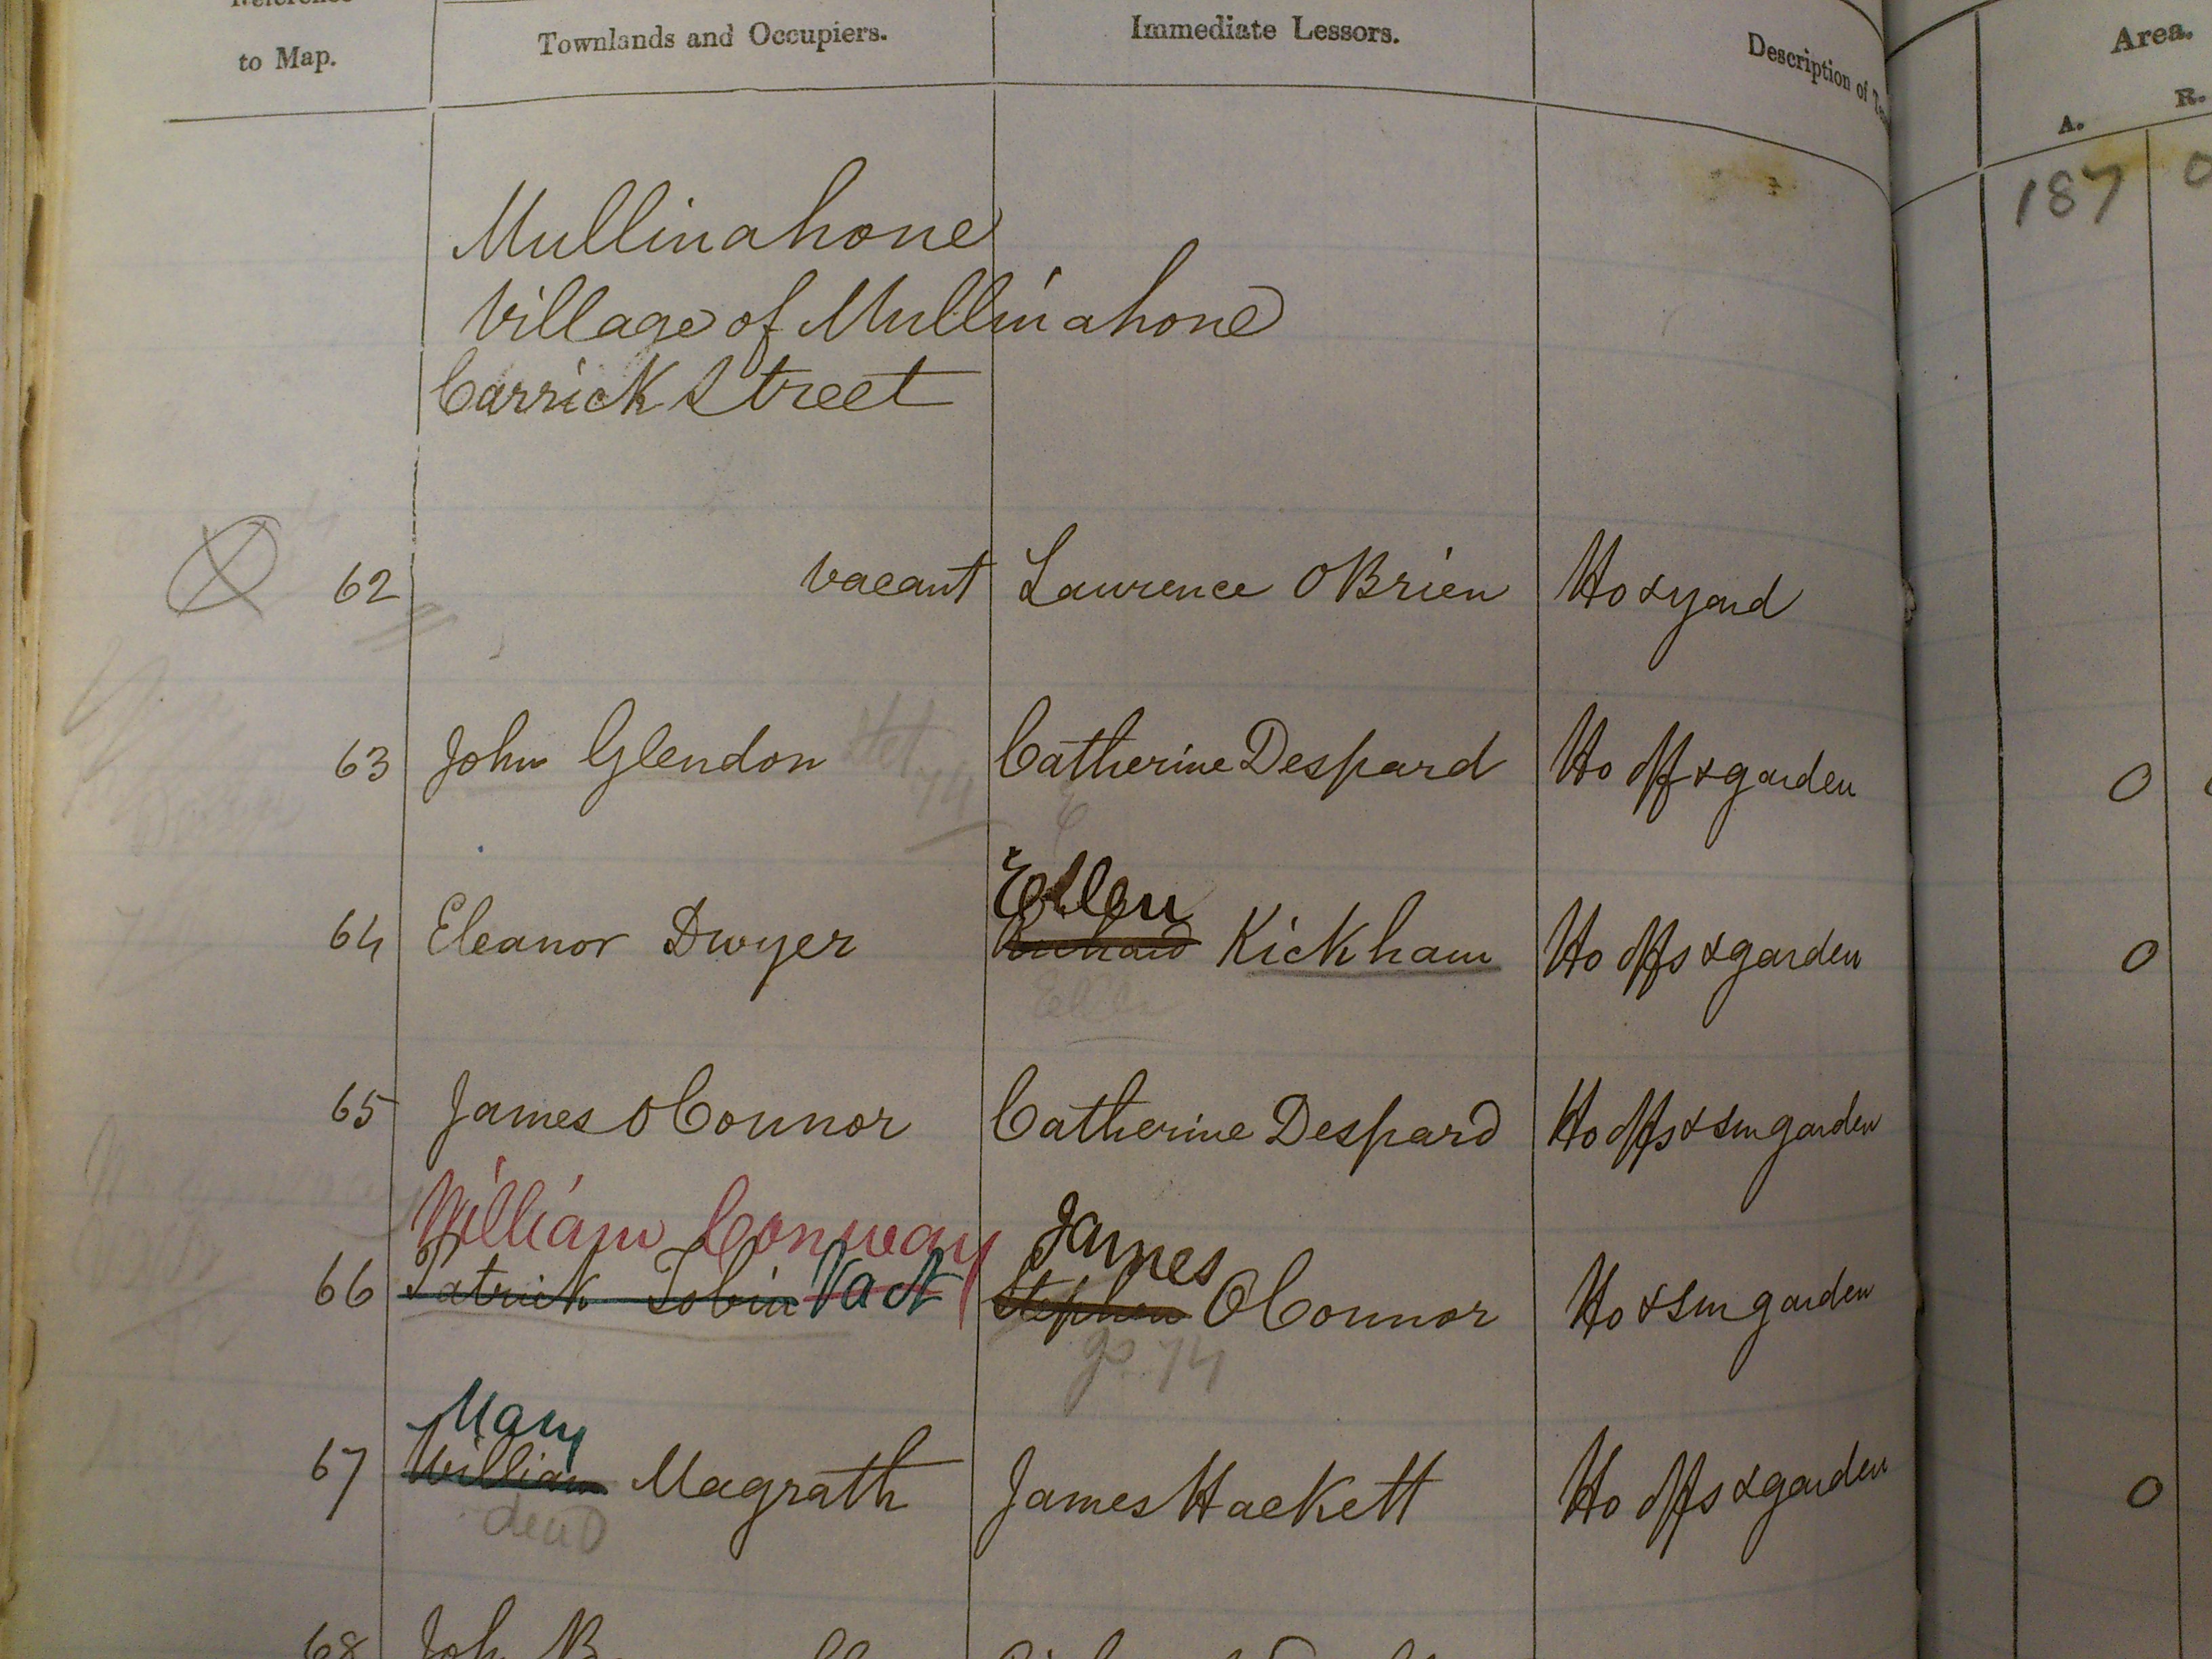 to Map.
Townlands and Occupiers.
Immediate Lessors.
Description of
Area.
A. R.
187 0
Mullinahone
Village of Mullinahone
Carrick Street
62 vacant Lawrence OBrien Ho & yard
63 John Glendon Catherine Despard Ho off & garden 0
Ellen
64 Eleanor Dwyer Richard Kickham Ho offs & garden 0
Ellen
65 James OConnor Catherine Despard Ho offs & sm garden
William Conway James
66 Patrick Tobin Vact Stephen OConnor Ho & sm garden
74
Mary
67 William Magrath James Hackett Ho offs & garden 0
dead
68